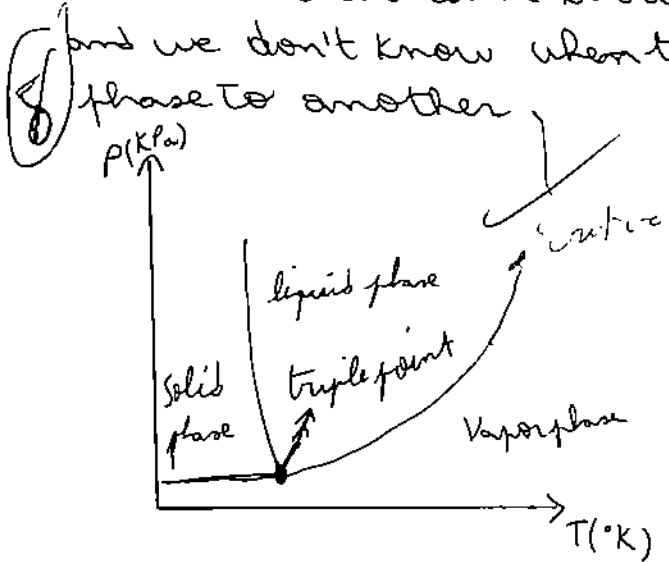 and we don't know when t
8 phase to another
P(KPa)
liquid phase
solid
phase
triple point
Vapor phase
T(°K)